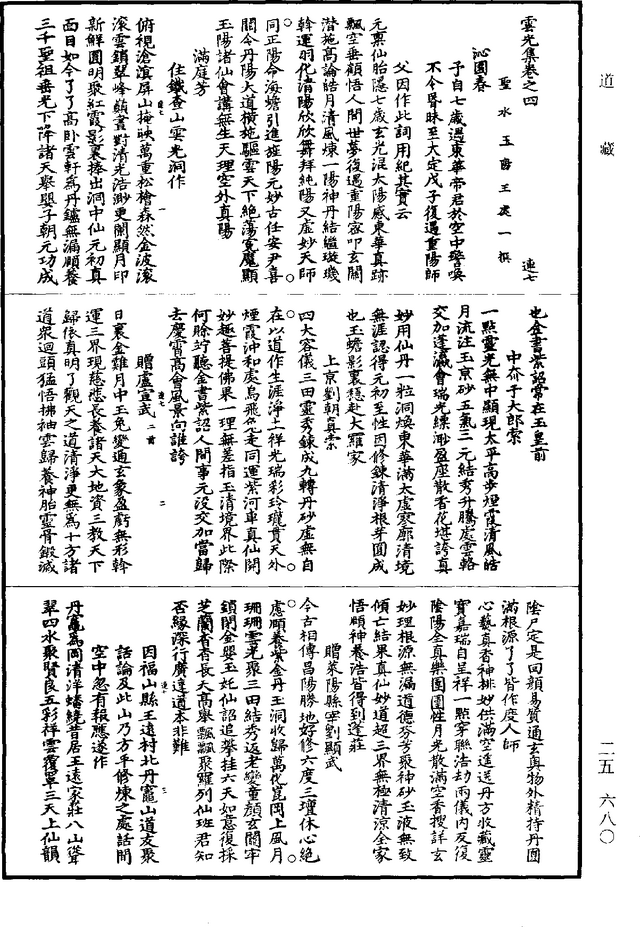 道藏
雲光集卷之四
聖水玉陽王處一撰
連七
沁園春
予自七歲遇東華帝君於空中警喚
不令昬昧至大定戊子復遇重陽師
父因作此詞用紀其實云
元稟仙胎隱七歲玄光混太陽感東華真跡
飄空垂顧悟人間世夢復遇重陽密叩玄關
潛施高論皓月清風煉一陽神丹結繼璇璣
斡運羽化清陽欣欣舞拜純陽又虛妙天師
同正陽命海蟾引進旌陽元妙古任安尹喜
關令丹陽大道橫施驅雲天下絶蕩冤魔顯
玉陽諸仙會講無生天理空外真陽
滿庭芳
住鐵查山雲光洞作
俯視滄溟屏山掩映萬重松檜森然金波滚
滚雲鎖翠峰巔晝對清光浩渺更闌顯月印
新鮮圓明聚紅霞影裏捧出洞中仙元初真
面目如今了了高卧雲軒為丹鑪無漏顧養
三千聖祖垂光下降諸天舉嬰子朝元功成
也金書紫詔常在玉皇前
中夲于大郎索
一點靈光無中顯現太平高步煙霞清風皓
月流注玉京砂五氣三元結秀升騰處雲輅
交加蓬瀛會瑞光縹渺盈座散香花堪誇真
妙用仙丹一粒洞煥東華滿太虛寥廓清境
無涯認得元初至性因修鍊清淨根芽圓成
也玉蟾影裏穩赴大羅家
上京劉朝真索
四大容儀三田靈秀鍊成九轉丹砂虛無自
在以道作生涯淨土祥光瑞彩玲瓏貫天外
煙霞沖和處烏飛兔走同運紫河車真仙開
妙趣菩提佛果一理無差指玉清境界此際
何賒竚聽金書紫詔人間事元没交加當歸
去慶霄高會風景向誰誇
贈盧宣武
日裏金雞月中玉兔變通玄象盈虧無形斡
運三界現慈悲長養諸天大地資三教天下
歸依真明了觀天之道清淨更無為十方諸
道衆迴頭猛悟拂袖雲歸養神胎靈骨鍛滅
陰尸定是回顏易質通玄真物外精持丹圓
滿根源了了皆作度人師
心藝真香神排妙供滿空進送丹方收藏靈
寶嘉瑞自呈祥一點穿聯浩劫兩儀內反復
陰陽全真樂團團性月光散滿空香搜詳玄
妙理根源無漏道德芬芳聚神砂玉液無致
傾亡結果真仙妙道超三界無極清涼全家
悟頤神養浩皆得到蓬莊
贈萊陽縣宰劉顯武
今古相傳昌陽勝地好修六度三壇休心絶
慮頤養紫金丹玉洞收歸萬化崑岡上風月
珊珊雲光聚三田結秀返老變童顏玄關牢
鎖閉金嬰玉姹仙詔追攀挂六天如意復採
芝蘭杳杳長天高舉飄飄聚羅列仙班君知
否緣深行廣達道本非難
因福山縣王遠村北丹竈山道友聚
話論及此山乃方平修煉之處話間
空中忽有報應遂作
丹竈為岡清洋蟠繞昔居王遠家莊八山聳
翠四水聚賢良五彩祥雲覆罩三天上仙韻
二五 六八〇